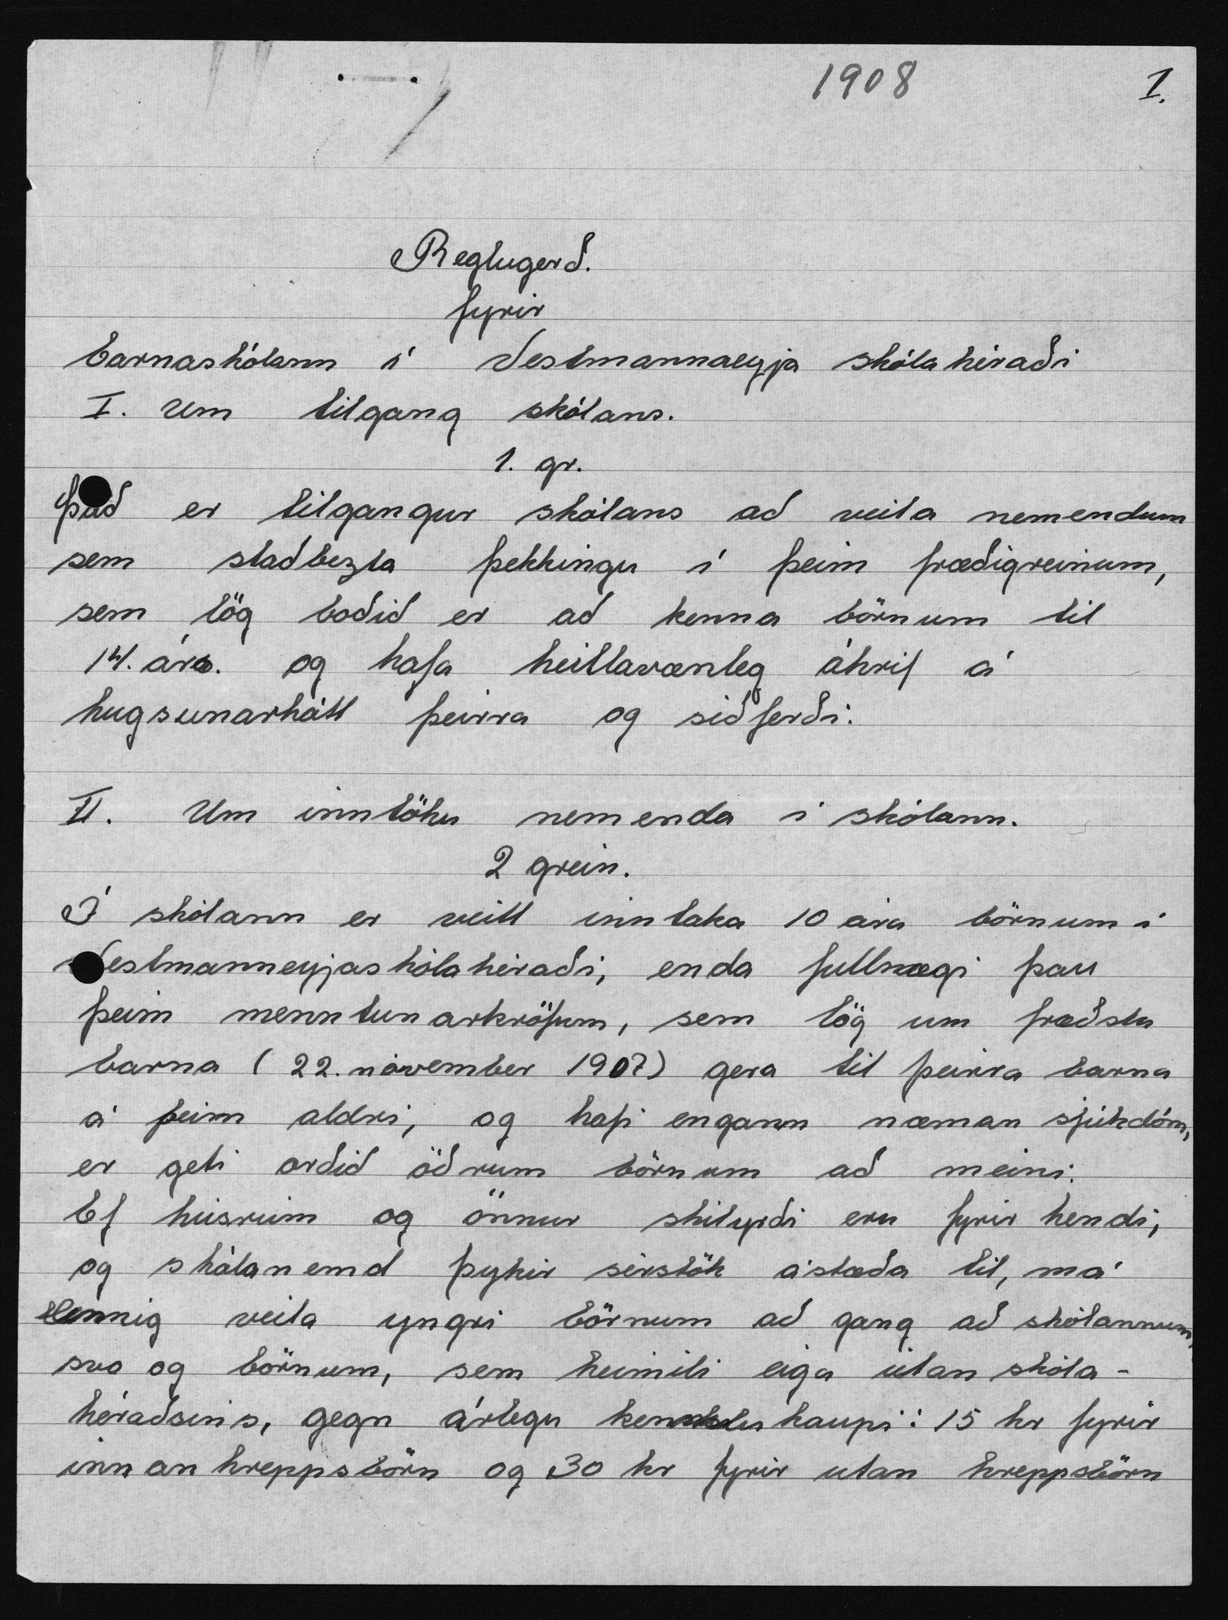 1908 1.
Reglugerð.
fyrir
barnaskólann í Vestmannaeyja skólahéraði
I. Um tilgang skólans.
1. gr.
Það er tilgangur skólans að veita nemendum
sem staðbezta þekkingu í þeim fræðigreinum,
sem lög boðið er að kenna börnum til
14. ára. og hafa heillavænleg áhrif á
hugsunarhátt þeirra og siðferði.
II. Um inntöku nemenda í skólann.
2 grein.
Í skólann er veitt inntaka 10 ára börnum í
Vestmanneyjaskólahéraði, enda fullnægi þau
þeim menntunarkröfum, sem lög um fræðslu
barna (22. nóvember 1907) gera til þeirra barna
á þeim aldri, og hafi engann næman sjúkdóm,
er geti orðið öðrum börnum að meini.
Ef húsrúm og önnur skilyrði eru fyrir hendi,
og skólanemd þykir sérstök ástæða til, má
einnig veita yngri börnum að gang að skólannum,
svo og börnum, sem heimili eiga utan skóla-
héraðsins, gegn árlegu kennslukaupi: 15 kr fyrir
innanhreppsbörn og 30 kr fyrir utan hreppsbörn